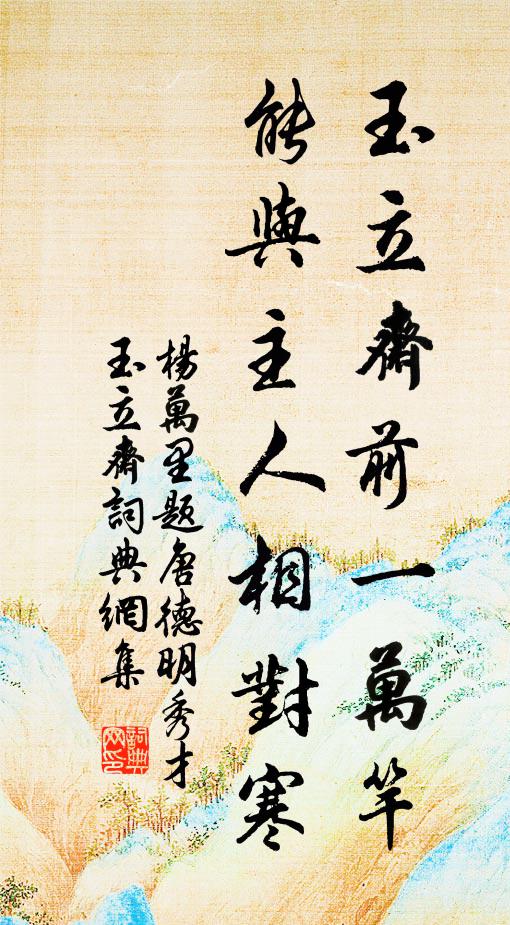 玉立齋前一萬竿
能與主人相對寒
楊萬里題唐德明秀才
玉立齋詞典網集
詞典
网印